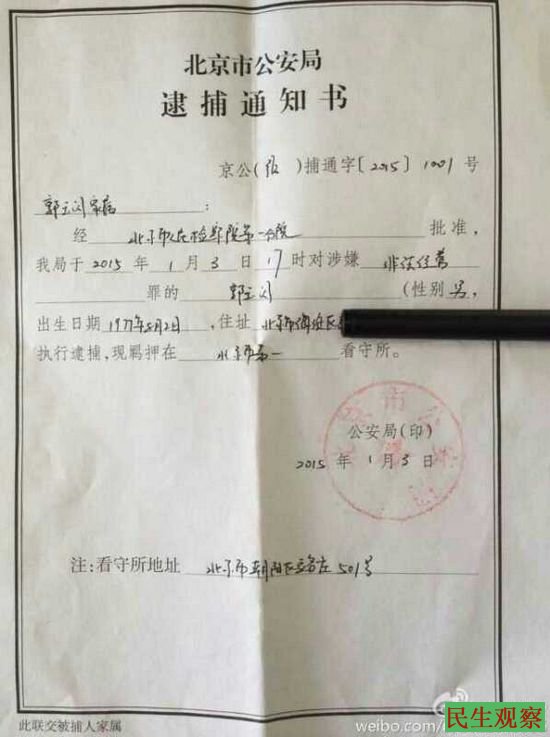 北京市公安局
逮捕通知书
京公( )捕通字〔2015〕1001号
郭玉闪家属:
经 北京市人民检察院第一分院 批准,
我局于 2015 年 1 月 3 日 17 时对涉嫌 非法经营
罪的 郭玉闪 (性别 男,
出生日期 1977年5月2日, 住址 北京市海淀区
执行逮捕,现羁押在 北京市第一 看守所。
公安局(印)
2015 年 1 月 3 日
注:看守所地址 北京市朝阳区豆各庄501号
此联交被捕人家属
weibo.com/
民生观察